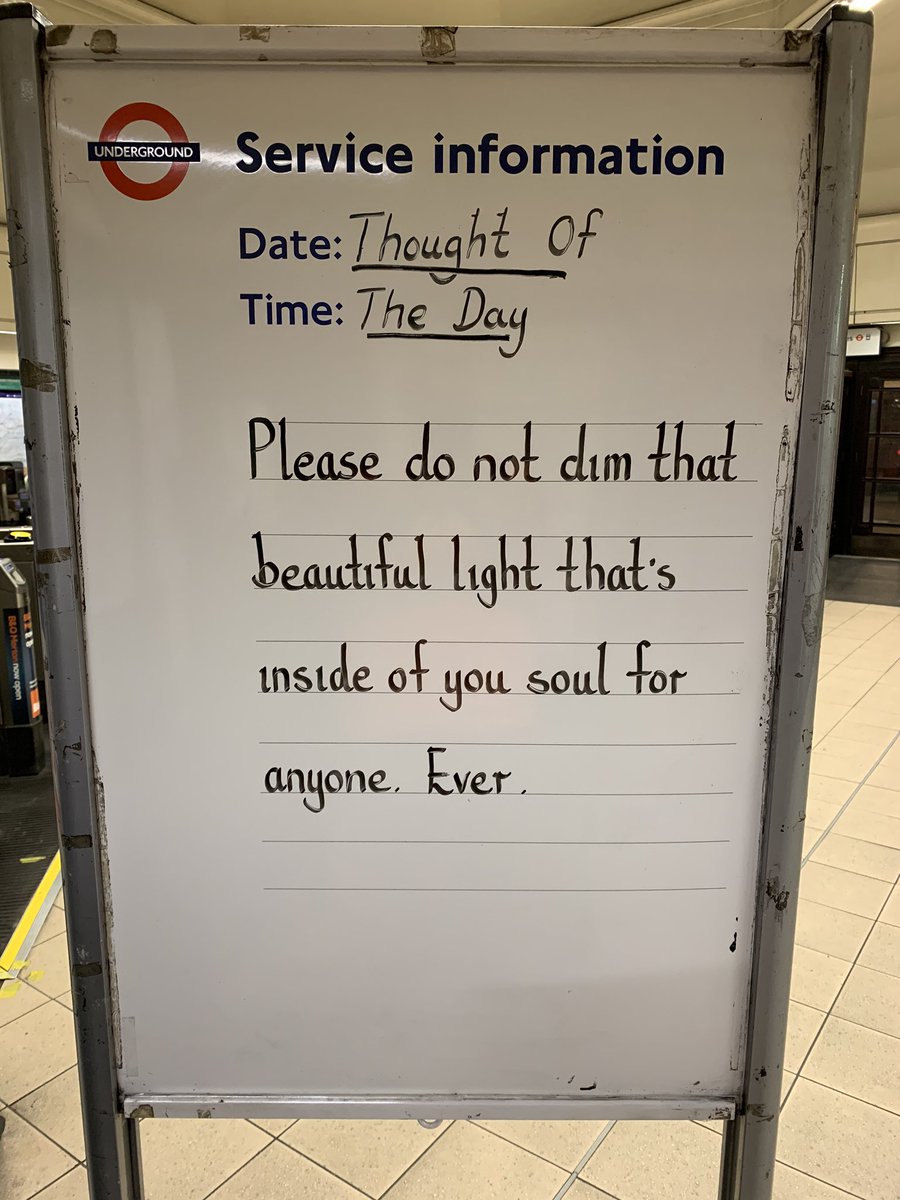 UNDERGROUND
Service information
Date: Thought Of
Time: The Day
Please do not dim that
beautiful light that's
inside of you soul for
anyone. Ever.
B&Q Merton now open